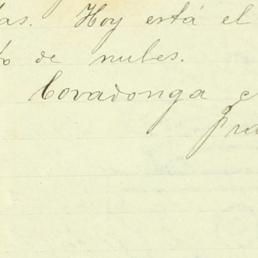 as. Hoy está el
o de nubes.
Covadonga e
pra